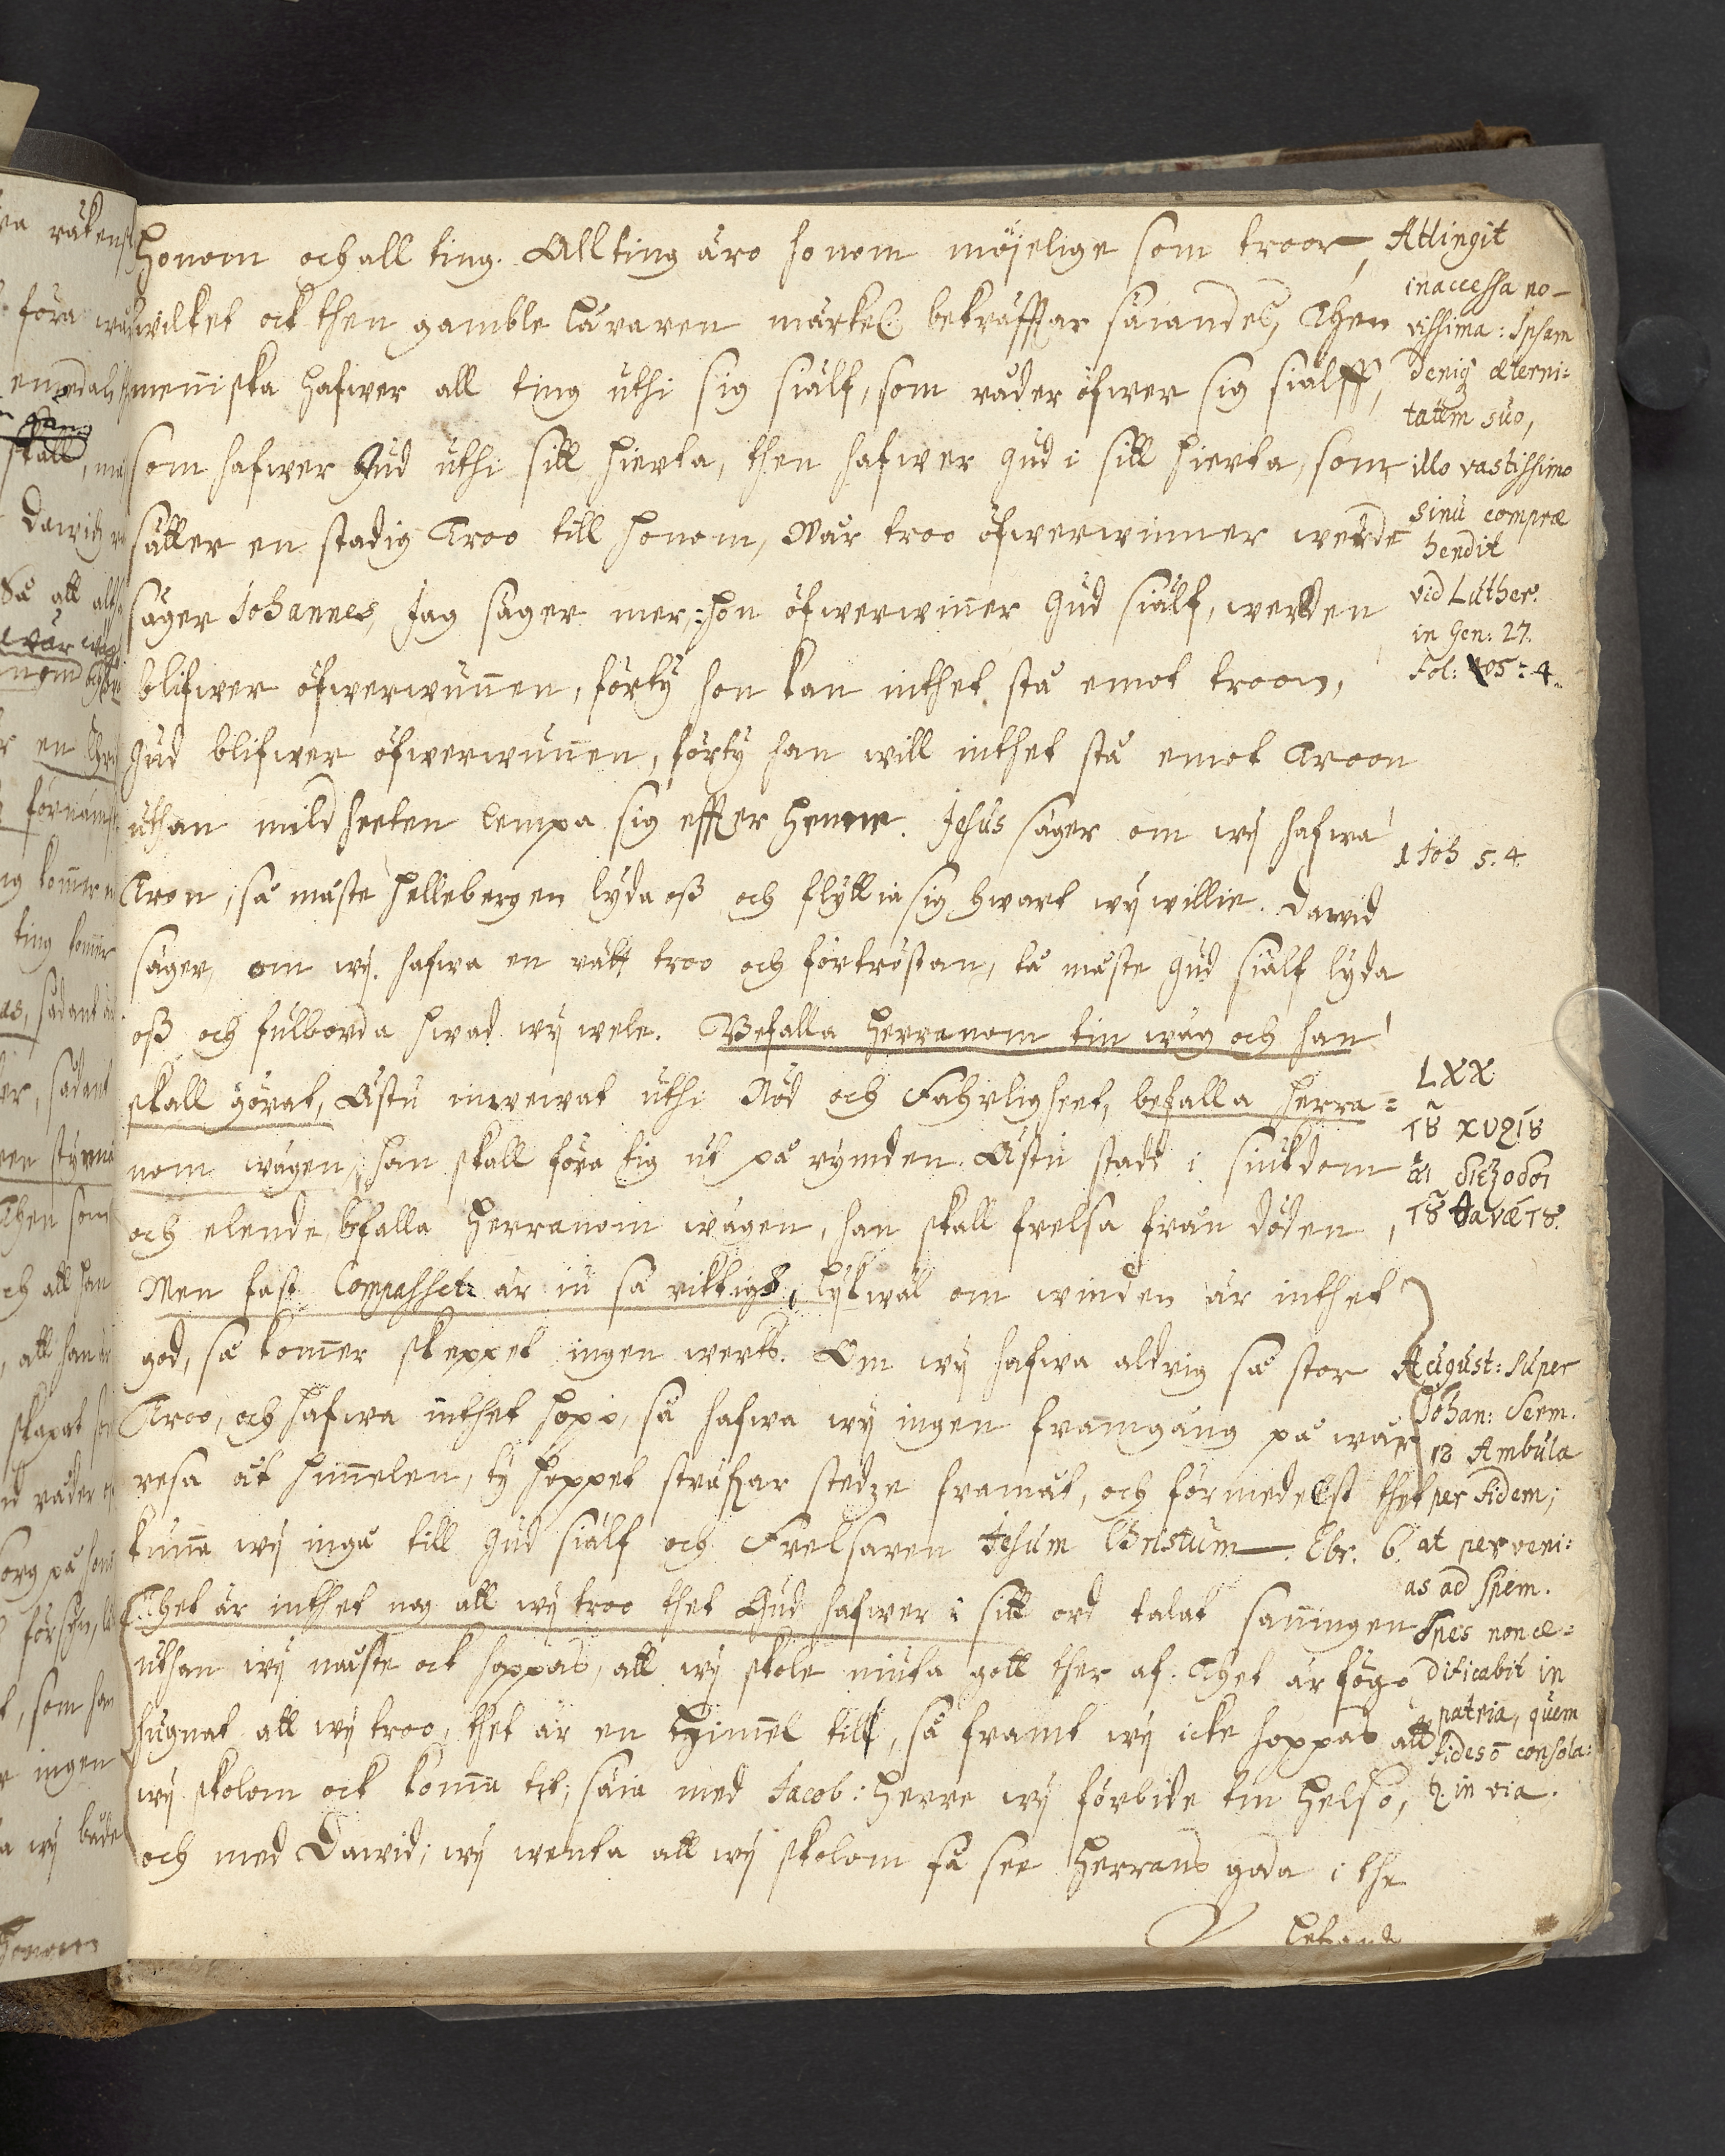 Honom och all ting. All ting äro honom möjelige som troor,
hwilket ock then gamble läraren märkel. bekräfftar säiandes, Then
menniska hafwer all ting uthi sig siälf, som råder öfwer sig siälff,
som hafwer Gud uthi sitt hierta, then hafwer gud i sitt hierta, som
sätter en stadig Troo till honom, Wår troo öfwerwinner werlde
säger Johannes, Jag säger mer, hon öfwerwinner Gud siälf, werlden
blifwer öfwerwunnen, förty hon kan inthet stå emot troon,
Gud blifwer öfwerwunnen, förty han will inthet stå emot Troon
uthan mildheeten lempa sig effter henne. Jesus säger om wij hafwa
Tron, så måste hellebergen lyda oß och flyttia sig hwart wij willie. Dawid
säger, om wij hafwa en rätt troo och förtröstan, tå måste Gud siälf lyda
oß och fulborda hwad wij wele. Befalla Herranom tin wäg och han
skall görat, Ästu inwewat uthi Nöd och Fahrligheet, befalla Herra=
nom wägen, han skall föra tig ut på rymden. Ästu stadd i siukdom
och elende, befalla Herranom wägen, han skall frelsa från döden,
Men fast Compasset är iu så riktigt, lykwäl om winden är inthet
god, så kommer skeppet ingen werts. Om wij hafwa aldrig så stor
Troo, och hafwa inthet hopp, så hafwa wij ingen framgång på wår
resa åt himmelen, ty hoppet sträfwar stedze framåt, och förmedelst thet
kunna wij ingå till Gud siälf och Frelsaren Jesum Christum. Ebr. 6.
Thet är inthet nog att wij troo thet Gud hafwer i sitt ord talat sanningen
uthan wij måste ock hoppas, att wij skole niuta gott ther af. Thet är föga
hugnat att wij troo, thet är en Himmel till, så framt wij icke hoppas att
wij skolom ock komma tit; säia med Jacob: Herre wij förbide tin helso,
och med Dawid; wij wenta att wij skolom få see Herrans goda i the
Lefvande
Attingit
inaccessa no-
vissima: Ipsam
deniq æterni=
tatem suo,
illo vastissimo
sinu compræ
hendit
vid Luther.
in Gen: 27.
Fol: 405: 4.
1 Joh 5. 4.
LXX
τȣ̃ κυρίȣ
αἱ διέξοδοι
τȣ̃ θανάτȣ.
August: super
Johan: Serm.
13 Ambula
per fidem;
at perveni=
as ad spem.
Spes non æ=
dificabit in
patria, quem
fides ō consola=
t. in via.